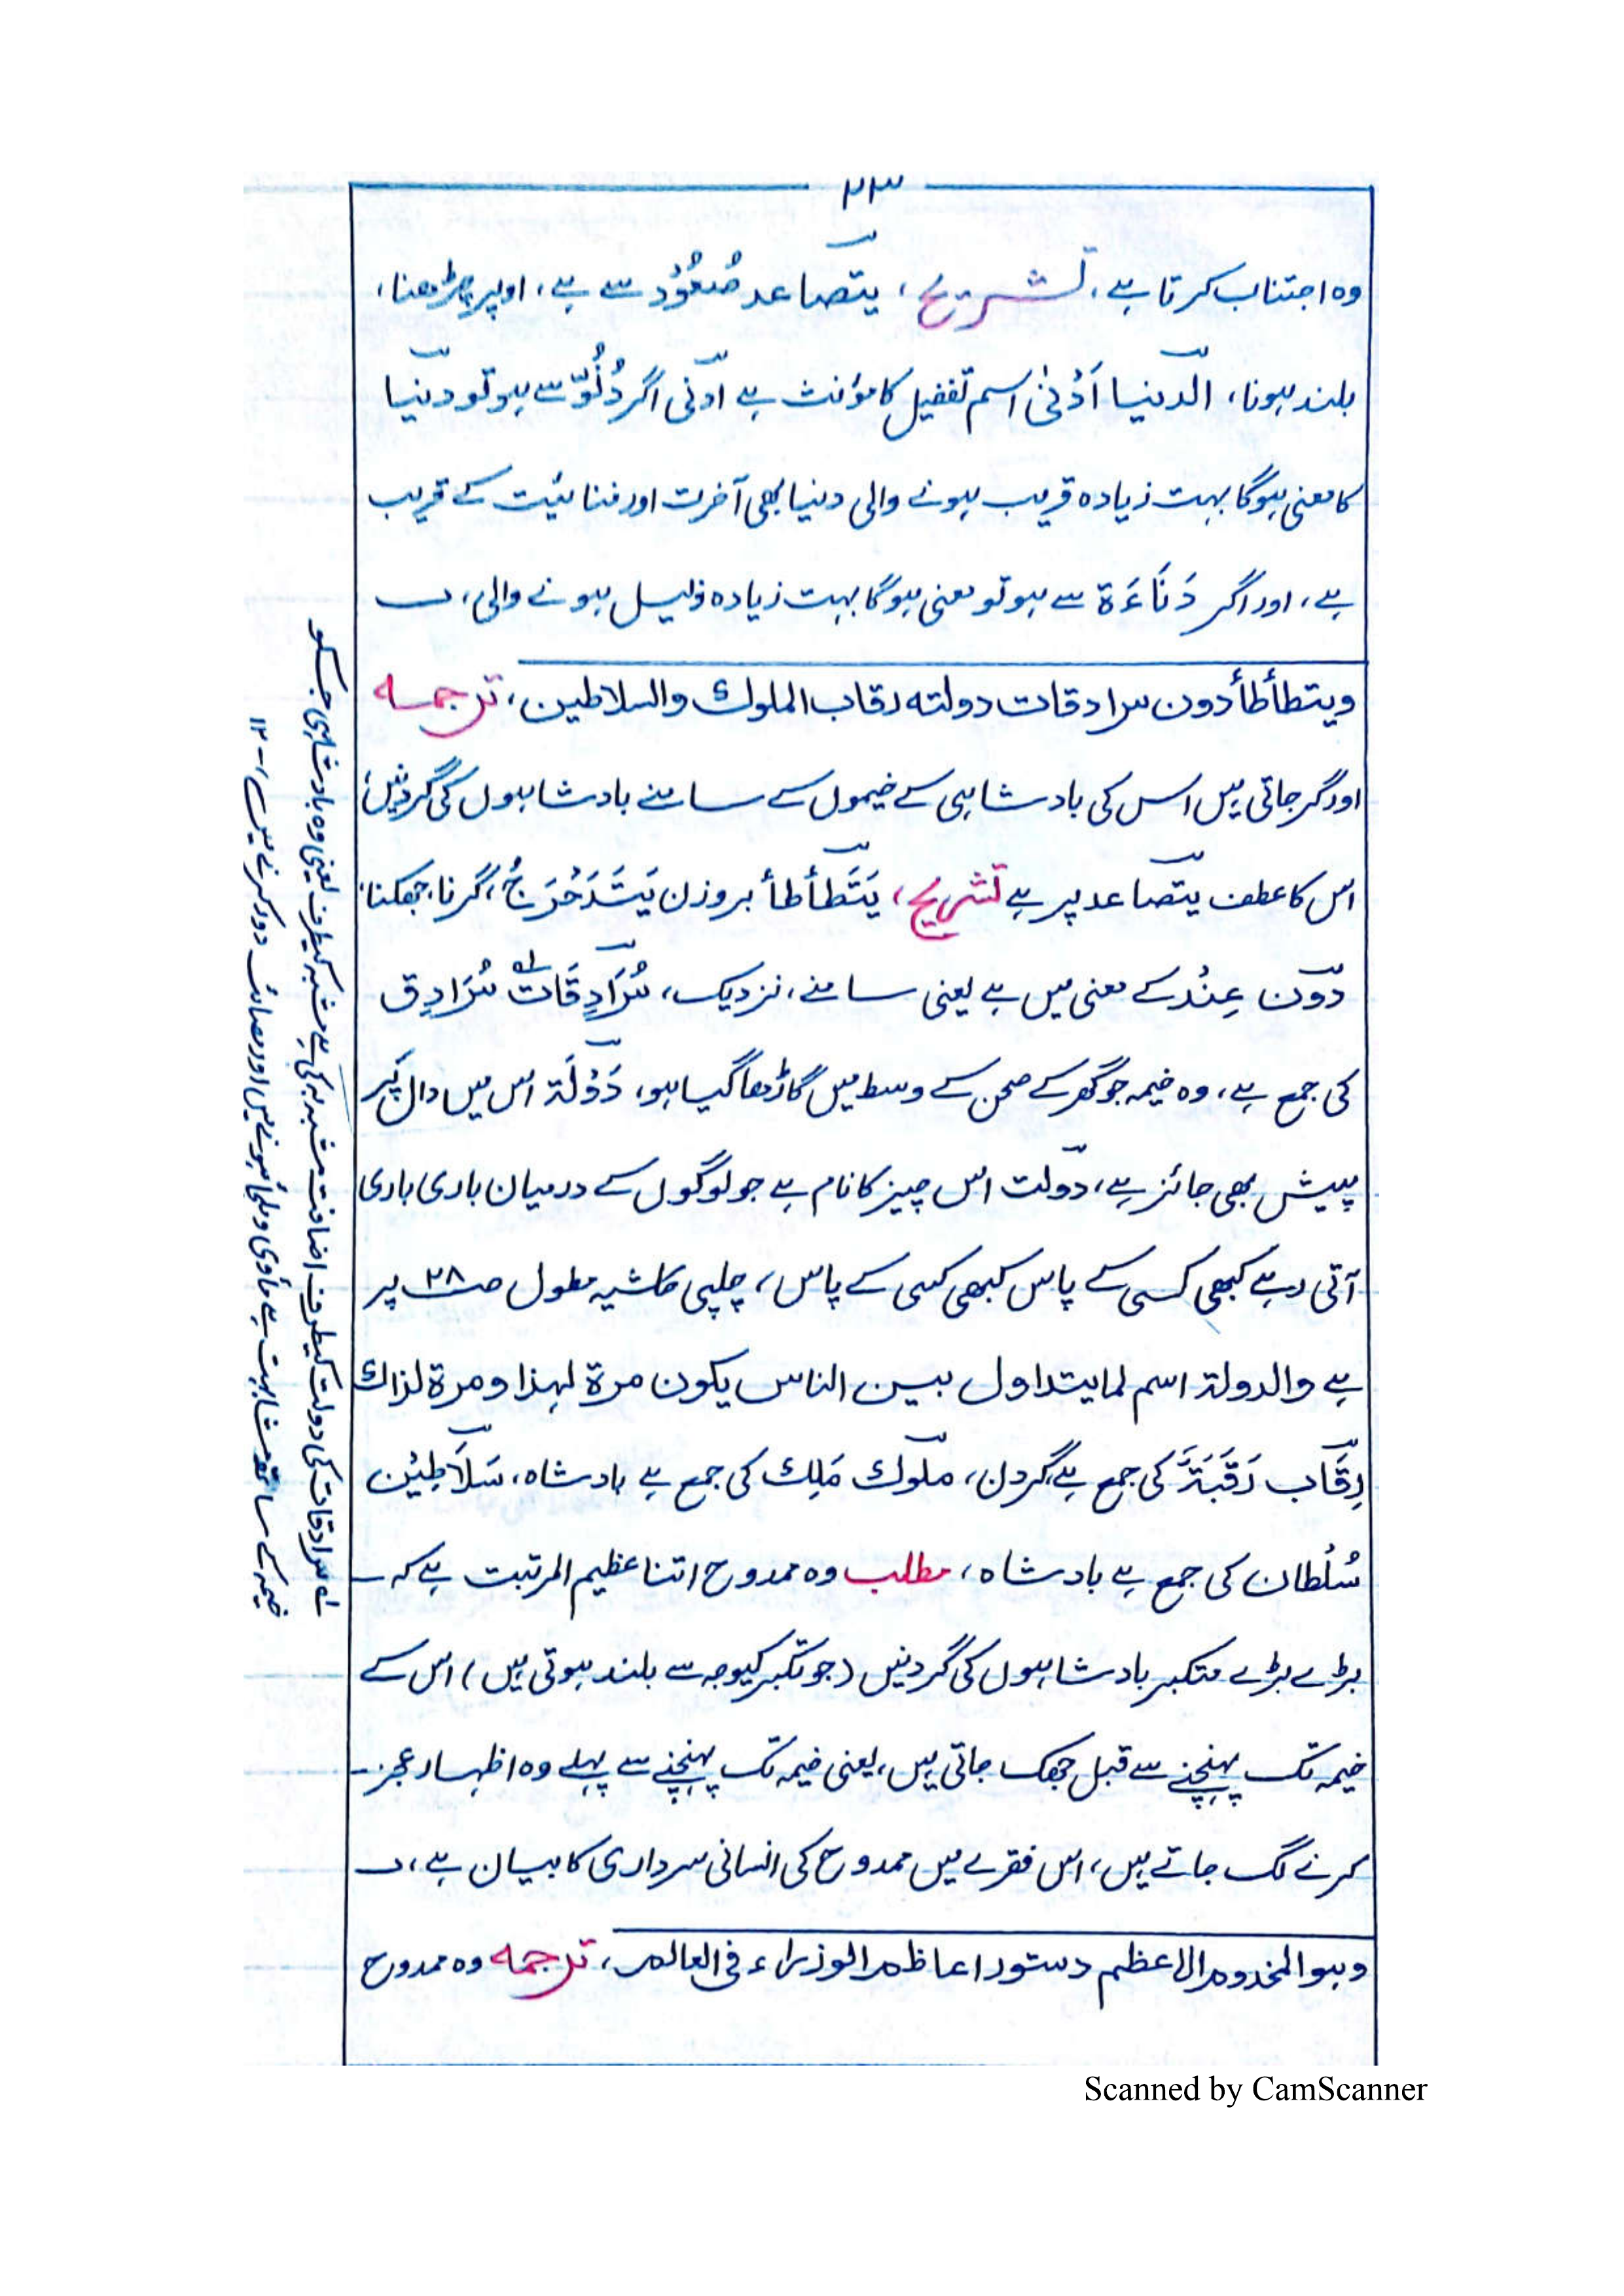 ۲۳
وہ اجتناب کرتا ہے، تشریح، یتصاعد صُعُوْد سے ہے، اوپر چڑھنا،
بلند ہونا، الدنیا اَدْنیٰ اسم تفضیل کا مؤنث ہے ادنی اگر دُنُوّ سے ہو تو دنیا
کا معنی ہوگا بہت زیادہ قریب ہونے والی دنیا بھی آخرت اور فنائیت کے قریب
ہے، اور اگر دَنَاءَۃ سے ہو تو معنی ہوگا بہت زیادہ ذلیل ہونے والی،
ویتطأطأ دون سرادقات دولتہ رقاب الملوک والسلاطین، ترجمہ
اور گر جاتی ہیں اس کی بادشاہی کے خیموں کے سامنے بادشاہوں کی گردنیں،
اس کا عطف یتصاعد پر ہے تشریح، یَتَطَأطأ بروزن یَتَدَحْرَجُ، گرنا، جھکنا،
دون عِنْدَ کے معنی میں ہے یعنی سامنے، نزدیک، سُرَادِقَات سُرَادِق
کی جمع ہے، وہ خیمہ جو گھر کے صحن کے وسط میں گاڑھا گیا ہو، دَوْلَۃ اس میں دال پر
پیش بھی جائز ہے، دولت اس چیز کا نام ہے جو لوگوں کے درمیان باری باری
آتی رہے کبھی کسی کے پاس کبھی کسی کے پاس، چلپی حاشیہ مطول صـ ۲۸ پر
ہے والدولۃ اسم لما یتداول بین الناس یکون مرۃ لہذا ومرۃ لذاک
رِقَاب رَقَبَۃ کی جمع ہے گردن، ملوک مَلِک کی جمع ہے بادشاہ، سَلَاطِیْن
سُلْطان کی جمع ہے بادشاہ، مطلب وہ ممدوح اتنا عظیم المرتبت ہے کہ
بڑے بڑے متکبر بادشاہوں کی گردنیں (جو تکبر کیوجہ سے بلند ہوتی ہیں) اس کے
خیمہ تک پہنچنے سے قبل جھک جاتی ہیں، یعنی خیمہ تک پہنچنے سے پہلے وہ اظہار عجز
کرنے لگ جاتے ہیں، اس فقرے میں ممدوح کی انسانی سرداری کا بیان ہے،
وہو المخدوم الاعظم دستور اعاظم الوزراء فی العالم، ترجمہ وہ ممدوح
لہ سرادقات کی دولت کیطرف اضافت مشبہ بہ کی ہے مشبہ کیطرف یعنی وہ بادشاہی جسکو
خیمہ کے ساتھ مشابہت ہے ماوی وملجأ ہونے میں اور مصائب دور کرنے میں ۱۲
Scanned by CamScanner